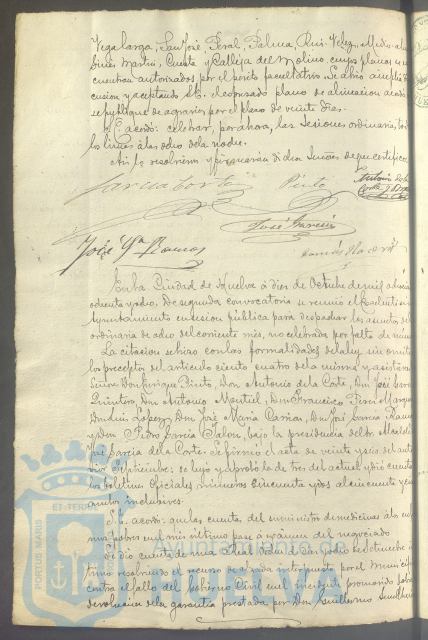 Vega larga, San José, Peral, Palma, Rui-Velez, Medio-al
Ginés Martín, Cuesta y Calleja del Molino, cuyos planos se en
cuentran autorizados por el perito facultativo. Se abrió amplia dis
cusión y aceptando S.E. el expresado plano de alineación acordó
se publique de agravios por el plazo de veinte días.
S.E. acordó: celebrar, por ahora, las sesiones ordinarias, to
los lunes á las ocho de la noche.
Así lo resolvieron y firmarán dichos Señores de que certifico.
García Corte
Pinto
Antonio de la
Corte y
José García
José Gª Ramos
En la Ciudad de Huelva á diez de Octubre de mil
ochenta y ocho. De segunda convocatoria se reunió el Excelentísimo
Ayuntamiento en sesión pública para despachar los asuntos de la
ordinaria de ocho del corriente mes, no celebrada por falta de
La citación se hizo con las formalidades de la ley sin omitir
los preceptos del artículo ciento cuatro de la misma y asistieron
Señores Don Enrique Pinto, Don Antonio de la Corte, Don José García
Quintero, Don Antonio Montiel, Don Francisco Marquez
Don Luis Lopez, Don José María Don José García Ramos
y Don Pedro García Jalon, bajo la presidencia del Sr. Alcalde
José García de la Corte. Se firmó el acta de veinte y seis del
Septiembre: se leyó y aprobó la de tres del actual y dió cuenta
los boletines Oficiales números cincuenta y dos al cincuenta y
inclusives.
S.E. acordó: que las cuentas del suministro de medicinas á los
pobres en el mes último pase á examen del negociado
Se dió cuenta de una Real Orden de
timo resolviendo el recurso de alzada interpuesto por el municipio
contra el fallo del Gobierno Civil en el incidente promovido sobre
devolución de la garantía prestada por Don Guillermo Sundheim
PORTUS MARIS
ET TERRAE
Ayuntamiento de
HUELVA